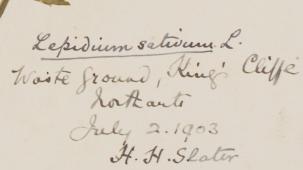 Lepidium sativum L.
Waste ground, King's Cliffe
Northants
July 2. 1903
H. H. Slater